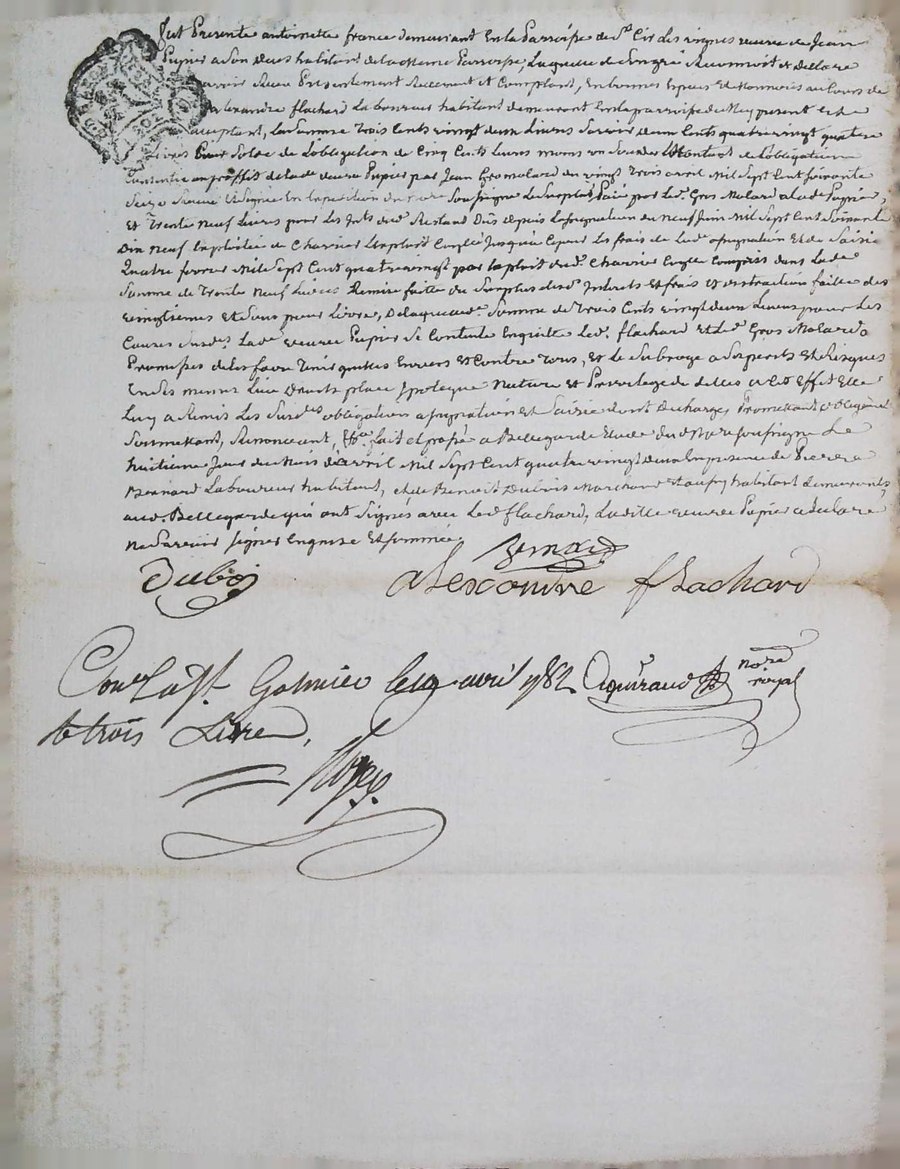 fut Presente antoinette france demeurant En la Parroisse de St Cir des vignes veuve de Jean
Pupier a Son deces habitant de la meme Parroisse, Laquelle de Son gré Reconnoit et declare
avoir Receu Presentement Reellement et Comptant, En bonnes Especes et Monnoies au Cours de
alexandre flachard Laboureur habitant demeurant En la parroisse de present et
acceptant, La Somme Trois Cents vingt deux Livres Scavoir deux Cents quatre vingt quatre
Livres Pour Solde de Lobligation de Cinq Cents Livres moins un Contenus de Lobligation
Consentie au proffit de lade veuve Pupier par Jean Gromolard du vingt Trois avril Mil Sept Cent Soixante
Seize Receue et Signée En Expedition du nore Soussigné Le Surplus Paié par Led. Gros Molard a lade Pupier,
Et Trente Neuf Livres pour les Jnts dud. Restand Dûs depuis Lassignation du Neuf Juin Mil Sept Cent Soixante
Dix Neuf Exploitée de Charvier Exploit Conlé Jusqua Ce jour Les frais de Lade assignation Et de Saisie
Quatre fevrier Mil Sept Cent quatre vingt par Exploit dud. Charvier Conlé Compris dans Lade
Somme de Trente Neuf Livres Remise faitte du Surplus desd. Interets et frais et distraction faitte des
vingtiemes Et Sous pour Livre, De laquelle de. Somme de Trois Cents vingt deux Livres pour Les
Causes Susds. Lade. veuve Pupier Se Contente En quitte Led. flachard et Led. Gros Molard &
Promesses de les faire Tenir quittes Envers Et Contre Tous, et Le Subroge a Ses perils Et Risques
En Ses memes Lieu Droits place ypoteque Nature et Privilege de dettes a Cet Effet Elle
Luy a Remis Les Susdes obligation assignation Et Saisie dont decharge, Promettant & obligeant
Soumettant, Renoncant, &ca. fait et passé a Bellegarde Etude du nore soussigné Le
huitieme Jour du Mois davril Mil Sept Cent quatre vingt deux En presence de Pierre
Bernand Laboureur habitant, et de Benoit Dubois Marchand habitant demeurants
aud. Bellegarde qui ont Signés avec Led. flachard, Laditte veuve Pupier a declaré
Ne Scavoir signer Enquise Et Sommée.
Dubois
alexandre flachard
Conlé a St. Galmier le 19 avril 1782 nore royal
R trois Livres,